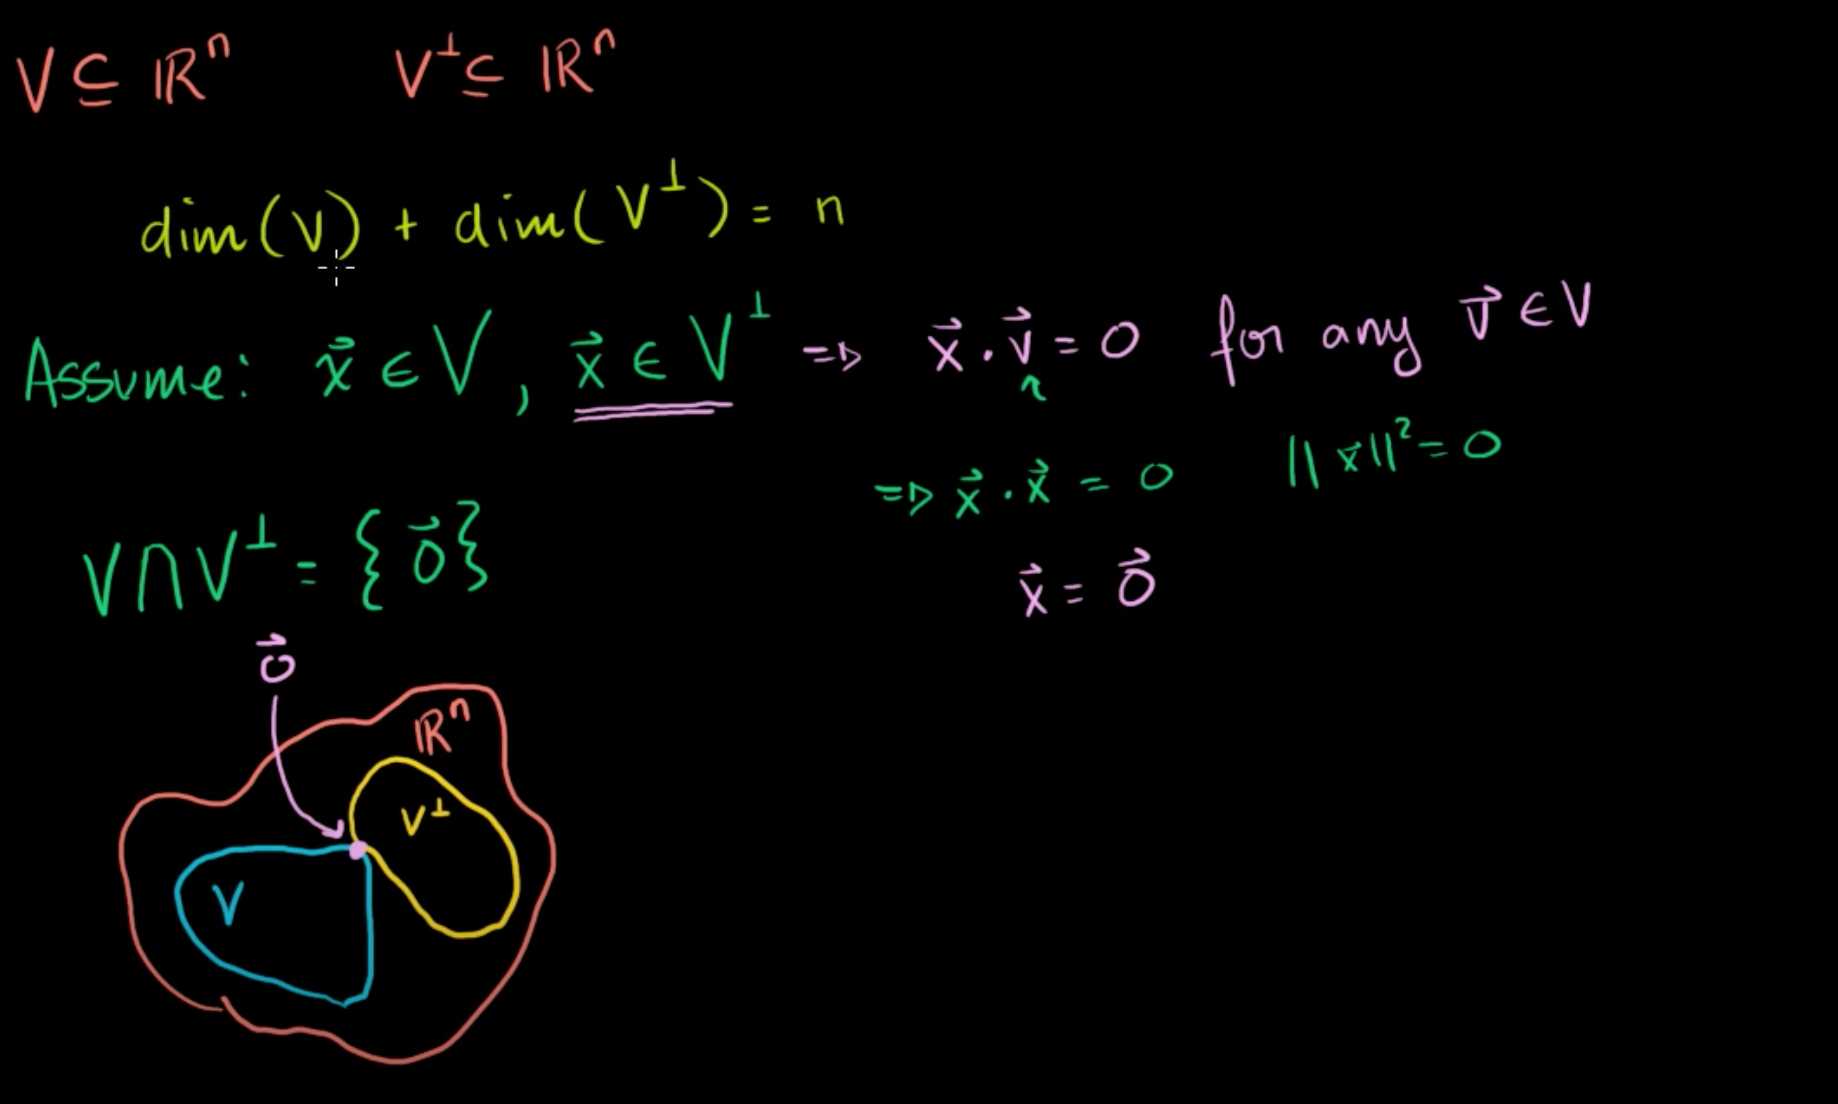 V ⊆ ℝⁿ V^⊥ ⊆ ℝⁿ
dim(V) + dim(V^⊥) = n
Assume: x⃗ ∈ V, x⃗ ∈ V^⊥ ⇒ x⃗ · v⃗ = 0 for any v⃗ ∈ V
⇒ x⃗ · x⃗ = 0 ||x⃗||² = 0
V ∩ V^⊥ = {0⃗}
x⃗ = 0⃗
0⃗
ℝⁿ
V^⊥
V